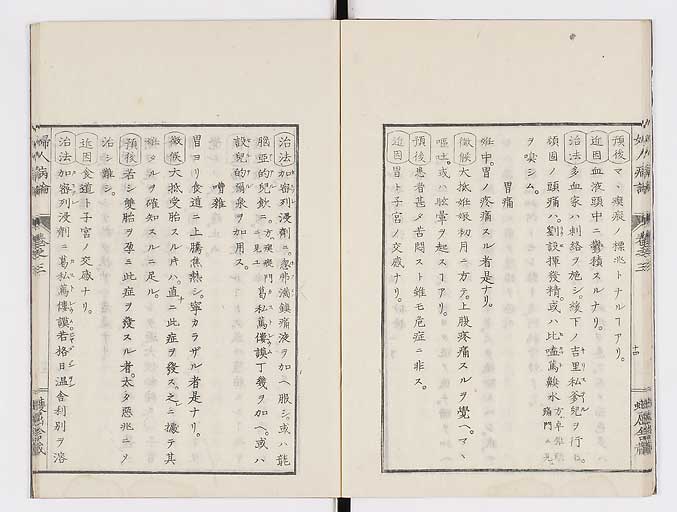 預後 マヽ癇瘛ノ標兆トナルヿアリ。
近因 血液頭中ニ鬱積スルナリ。
治法 多血家ハ刺絡ヲ施シ。後下ノ吉里私爹兒ヲ行ヒ。
頑固ノ頭痛ハ。劉設揮發精。或ハ比嗑篤鎮水
ヲ嗅シム。
胃痛
妊中。胃ノ疼痛スル者是ナリ。
徴候 大抵妊娠初月ニ方テ。上腹疼痛スルヲ覺ヘ。マヽ
嘔吐。或ハ眩暈ヲ起スヿアリ。
預後 患者甚タ苦悶スト雖モ危症ニ非ス。
近因 胃ト子宮ノ交感ナリ。
治法 加密列浸劑ニ。忽弗満鎮痛液ヲ加ヘ服シ。或ハ龍
腦亞的兒飲ニ。葛私篤僂謨丁幾ヲ加ヘ。或ハ
設兒的爾泉ヲ加用ス。
嘈雜
胃ヨリ食道ニ上騰焦熱シ。寧カラザル者是ナリ。
徴候 大抵受胎スル片ハ。直ニ此症ヲ發ス。之ニ據テ其
妊タルヲ確知スルニ足ル。
預後 若シ雙胎ヲ孕ミ此症ヲ發スル者。太タ惡兆ニソ
治シ難シ。
近因 食道ト子宮ノ交感ナリ。
治法 加密列浸劑ニ葛私篤僂謨若格日溫舍利別ヲ溶
婦人病論
卷之三